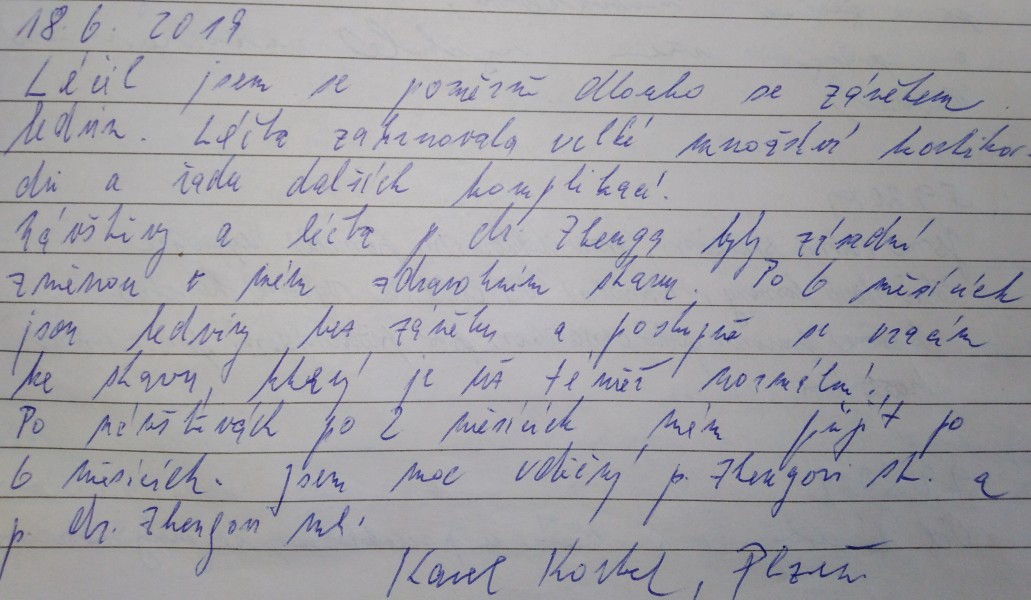 18. 6. 2019
Léčil jsem se poměrně dlouho se zánětem
ledvin. Léčba zahrnovala velké množství kortikoi-
dů a řadu dalších komplikací.
Návštěvy a léčba p. dr. Zhenga byly zásadní
změnou v mém zdravotním stavu. Po 6 měsících
jsou ledviny bez zánětu a postupně se vracím
ke stavu, který je už téměř normální.
Po návštěvách po 2 měsících mám přijít po
6 měsících. Jsem moc vděčný p. Zhengovi st. a
p. dr. Zhengovi ml.
Karel, Plzeň